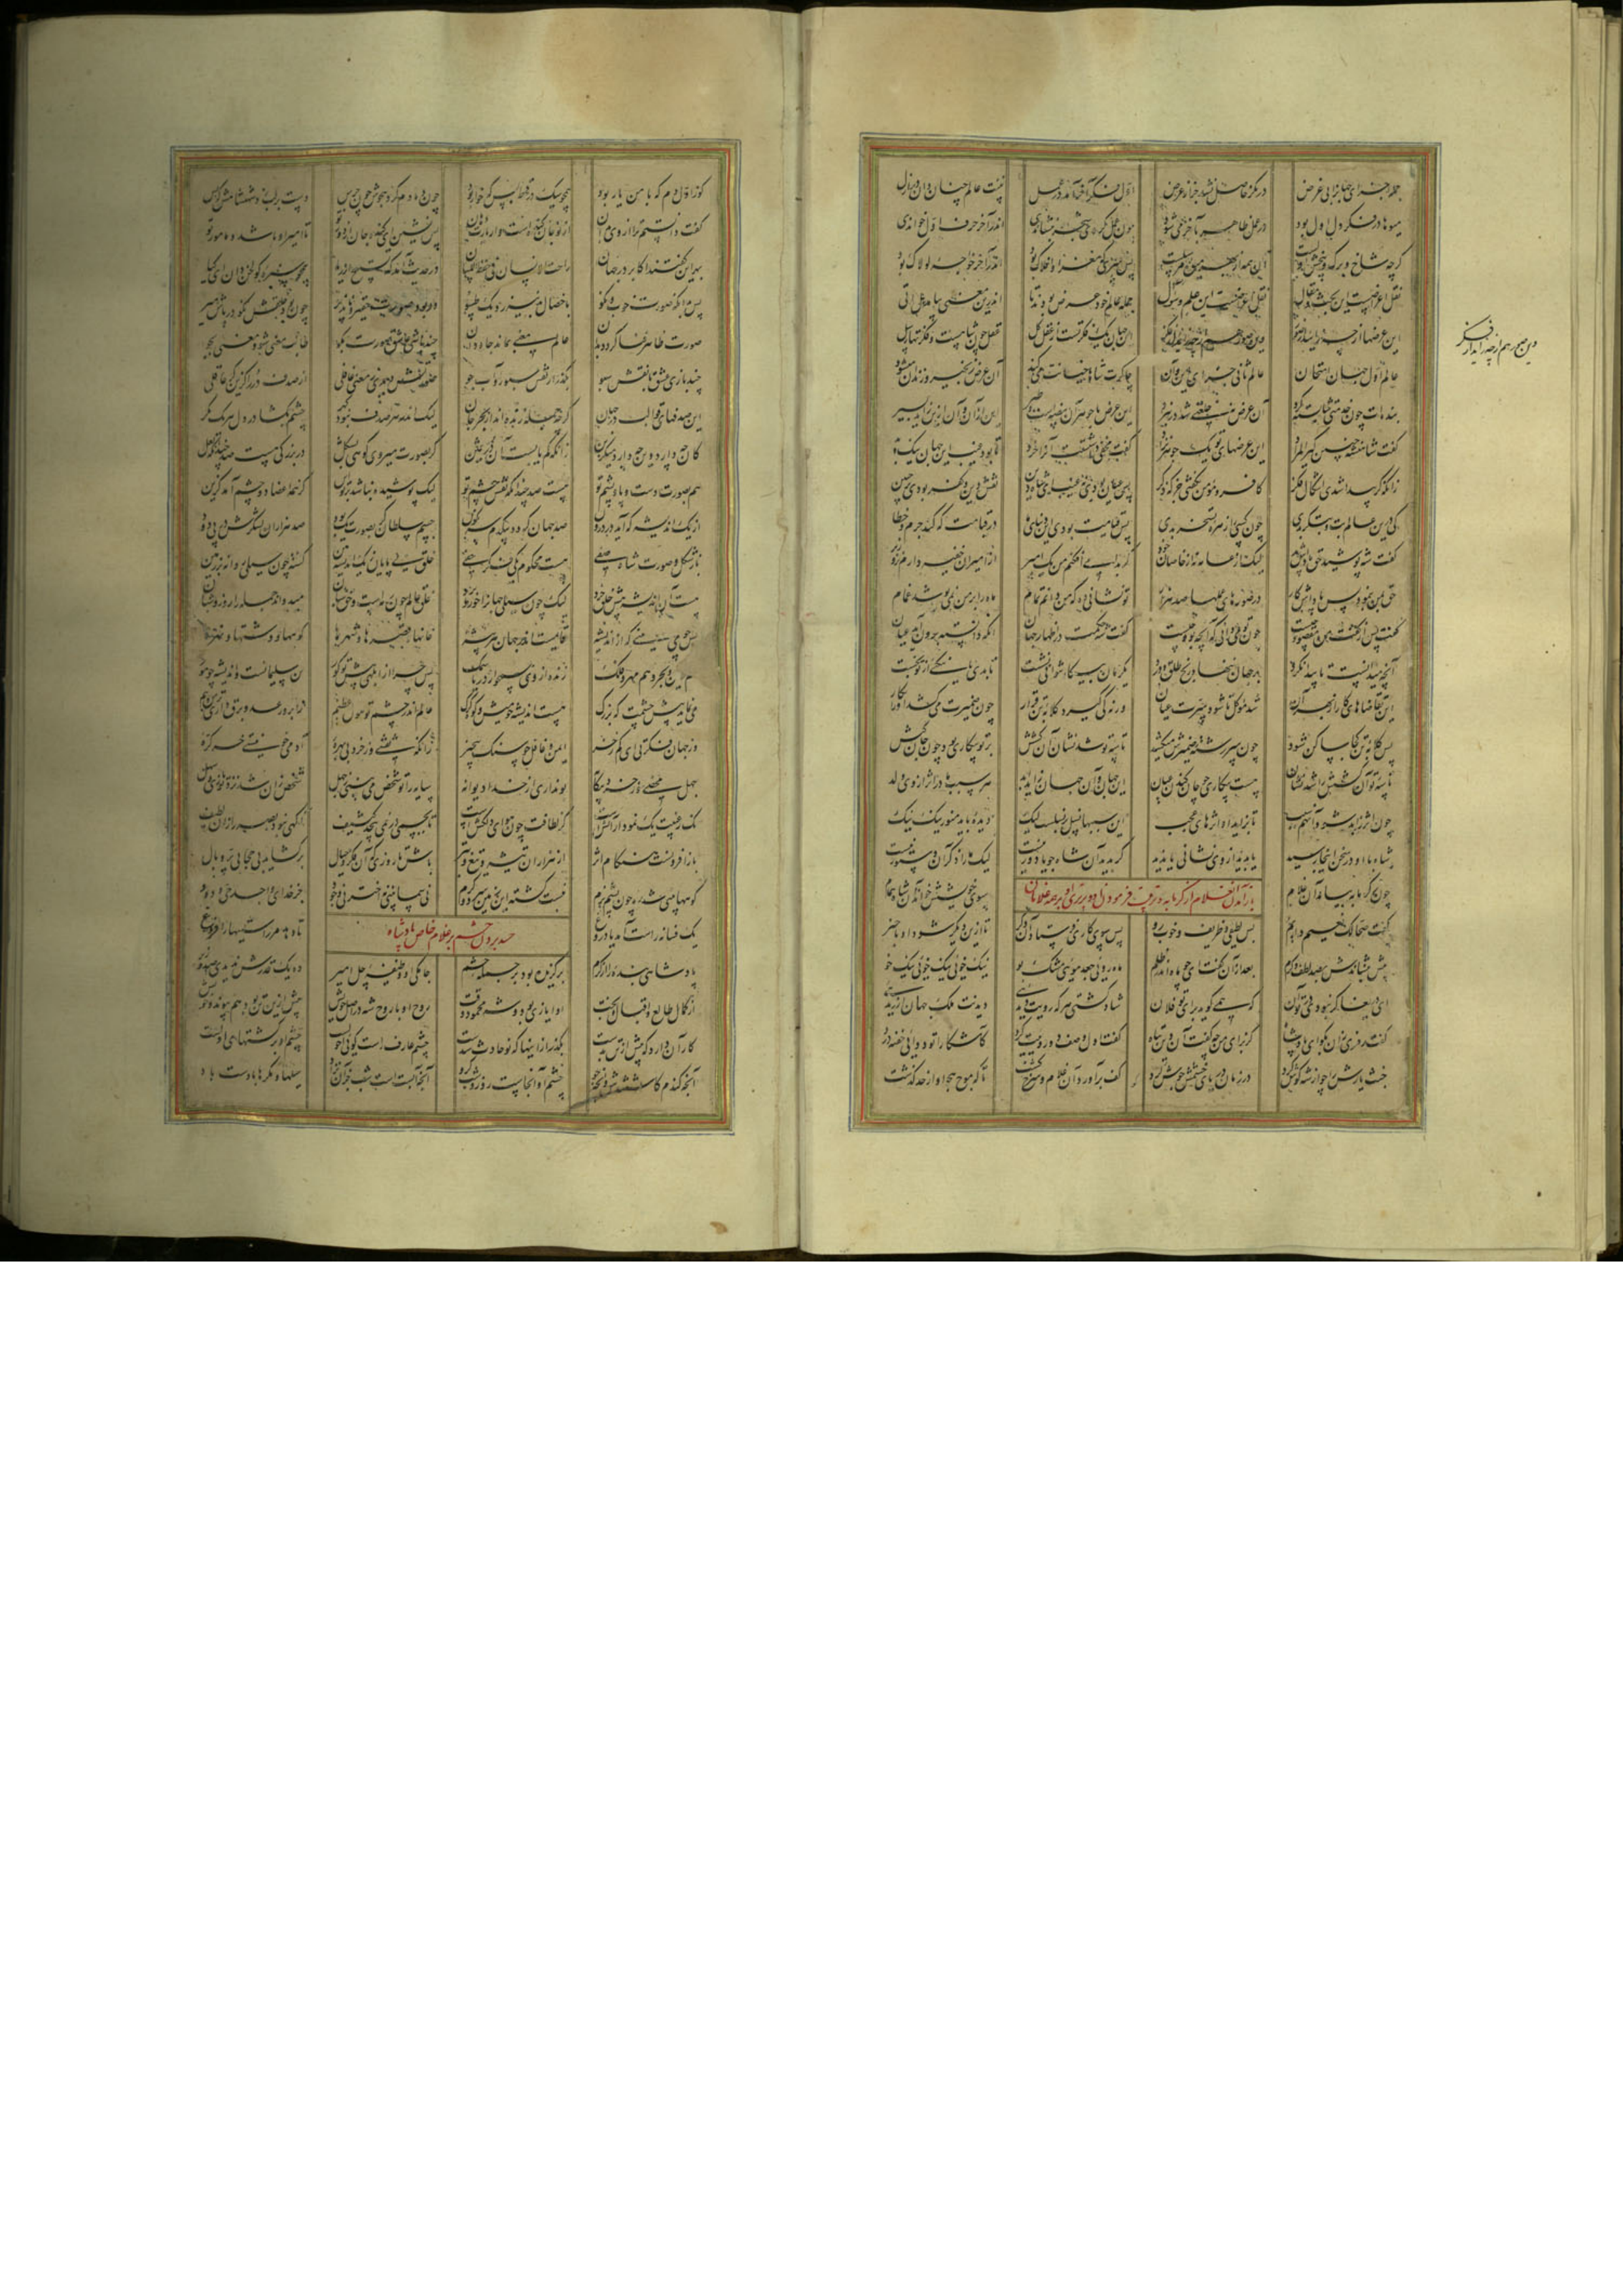 جمله اجزای جهان را بی غرض درنگر حاصل نشد جز از عرض اول فکر آخر آمد در عمل بنیت عالم چنان دان در ازل
میوها در فکر دل اول بود در عمل ظاهر بآخر می شود چون عمل کردی شجر بنشاندی اندر آخر حرف اول خواندی
گرچه شاخ و برگ و بیخش اولست آن همه از بهر میوه مرسلست پس سری که مغز آن افلاک بود اندر آخر خواجه لولاک بود
نقل اعراضست این بحث و مقال نقل اعراضست این جمله عالم خود عرض بودند تا اندرین معنی بیامد هل اتی
این عرضها از چه زاید از صور وین صور هم از چه زاید از فکر این جهان یک فکرتست از عقل کل عقل چون شاهست و فکرتها رسل
وین صور هم از چه زاید از فکر
عالم اول جهان امتحان عالم ثانی جزای این و آن چاکرت شاها خیانت می کند آن عرض زنجیر و زندان میشود
بنده ات چون خدمت شایسته کرد آن عرض نی خلعتی شد در نبرد این عرض با جوهر آن بیضه است و طیر این از آن و آن ازین زاید بسیر
گفت شاهنشه چنین گیر المراد این عرضهای تو یک جوهر نزاد گفت مخفی داشتست آنرا خرد تا بود غیب این جهان نیک و بد
زانکه گر پیدا شدی اشکال فکر کافر و مؤمن نگفتی جز که ذکر پس عیان بودی نه غیب ای شاه این نقش دین و کفر بودی بر جبین
کی درین عالم بت و بتگر بدی چون کسی را زهره تسخر بدی پس قیامت بودی این دنیای ما در قیامت که کند جرم و خطا
گفت شه پوشید حق پاداش بد لیک از عامه نه از خاصان خود گر بدامی افکنم من یک امیر از امیران خفیه دارم نز وزیر
حق بمن بنمود پس پاداش کار در صورهای عملها صد هزار تو نشانی ده که من دانم تمام ماه را بر من نمی پوشد غمام
گفت پس از گفت من مقصود چیست چون تو می دانی که آنچه بود چیست گفت شه حکمت در اظهار جهان آنکه دانسته برون آید عیان
آنچه میدانست تا پیدا نکرد بر جهان ننهاد رنج طلق و درد یک زمان بیکار نتوانی نشست تا بدی یا نیکیی از تو نجست
این تقاضاهای کار از بهر آن شد موکل تا شود سرت عیان ورنه کی گیرد کلابه تن قرار چون ضمیرت می کشد او را بکار
پس کلابه تن کجا ساکن شود چون سر رشته ضمیرش میکشد تاسه تو شد نشان آن کشش بر تو بیکاری بود چون جان کنش
تاسه تو آن کشش را شد نشان هست بیکاری چو جان کندن عیان این جهان و آن جهان زاید ابد هر سبب مادر اثر از وی ولد
چون اثر زایید شد آن هم سبب تا بزاید او اثرهای عجب این سببها نسل بر نسلست لیک دیده باید منور نیک نیک
شاه با او در سخن اینجا رسید یا بدید از وی نشانی یا ندید گر بدید آن شاه جویا دور نیست لیک ما را ذکر آن دستور نیست
چون ز گرمابه بیامد آن غلام سوی خویشش خواند آن شاه همام
باز آمدن غلام از گرمابه
گفت صحا لک نعیم دایم بس لطیفی و ظریف و خوب رو پس سوی کاری فرستاد آن دگر تا ازین دیگر شود او باخبر
پیش بنشاندش بصد لطف و کرم بعد از آن گفت ای چو ماه اندر ظلم ماه رویی جعد مویی مشک بو نیک خویی نیک خویی نیک خو
ای دریغا گر نبودی در تو آن که همی گوید برای تو فلان شاد گشتی هر که رویت دیدیی دیدنت ملک جهان ارزیدیی
گفت رمزی زان بگو ای پادشاه کز برای من چه گفت آن دین تباه گفت اول وصف دو رویت کرد کاشکارا تو دوایی خفیه درد
خبث یارش را چو از شه گوش کرد در زمان دریای خشمش جوش کرد کف برآورد آن غلام و سرخ گشت تا که موج هجو او از حد گذشت
کو ز اول دم که با من یار بود همچو سگ در قحط بس گه خوار بود چون دمادم کرد هجوش چون جرس دست بر لب زد شهنشاهش که بس
گفت دانستم ترا از وی بدان از تو جان گنده است و از یارت دهان پس نشین ای گنده جان از دور تو تا امیر او باشد و مامور تو
بهر این گفتند اکابر در جهان راحت الانسان فی حفظ اللسان در حدیث آمد که تسبیح از ریا همچو سبزه گولخن دان ای کیا
پس بدان که صورت خوب و نکو با خصال بد نیرزد یک تسو ور بود صورت حقیر و ناپذیر چون بود خلقش نکو در پاش میر
صورت ظاهر فنا گردد بدان عالم معنی بماند جاودان چند باشی عاشق صورت بگو طالب معنی شو و معنی بجو
چند بازی عشق با نقش سبو بگذر از نقش سبو رو آب جو صورتش دیدی ز معنی غافلی از صدف در را گزین گر عاقلی
این صدفهای قوالب در جهان گرچه جمله زنده اند از بحر جان لیک اندر هر صدف نبود گهر چشم بگشا در دل هر یک نگر
کان چه دارد وین چه دارد میگزین زانکه کم یابست آن در ثمین گر بصورت میروی کوهی بشکل در بزرگی هست صد چندانکه لعل
هم بصورت دست و پا و پشم تو هست صد چندانکه نقش چشم تو لیک پوشیده نباشد بر تو این کز همه اعضا دو چشم آمد گزین
از یک اندیشه که آید در درون صد جهان گردد بیکدم سرنگون جسم سلطان گر بصورت یک بود صد هزاران لشکرش در پی دود
باز شکل و صورت شاه صفی هست محکوم یکی فکر خفی خلق بی پایان ز یک اندیشه بین گشته چون سیلی روانه بر زمین
هست آن اندیشه پیش خلق خرد لیک چون سیلی جهانرا خورد و برد میدواند جمله را روز و شبان
پس چو می بینی که از اندیشه قایمست اندر جهان هر پیشه خانها و قصرها و شهرها کوهها و دشتها و نهرها
هم زمین و بحر و هم مهر و فلک زنده از وی همچو از دریا سمک پس چرا از ابلهی پیش تو کور تن سلیمانست و اندیشه چو مور
می نماید پیش چشمت که بزرگ هست اندیشه چو موش و کوه گرگ عالم اندر چشم تو هول عظیم ز ابر و رعد و برق داری ترس و بیم
وز جهان فکرتی ای کم ز خر ایمن و غافل چو سنگ بیخبر زانکه نقشی وز خرد بی بهره آدمی خو نیستی خر کره
جهل محضی وز خرد بیگانه بو نداری از خدا دیوانه سایه را تو شخص می بینی ز جهل شخص زان شد نزد تو بازی و سهل
گر لطافت چون هوای دلکش است تا بجسمی در نمی پیچد کثیف آگهی نبود بصر را زان لطیف
باز افزونست هنگام اثر از هزاران تیشه و تیغ و تبر باش تا روزی که آن فکر و خیال برگشاید بی حجابی پر و بال
کوهها بینی شده چون پشم نرم نیست گشته این زمین سرد و گرم نی سما بینی نه اختر نی وجود جز خدای واحد حی و ودود
یک فسانه راست آمد یا دروغ تا دهد مر راستیها را فروغ
حسد بردن حشم بر غلام خاص پادشاه
پادشاهی بنده را از کرم برگزیده بود بر جمله حشم جامگی او وظیفه چل امیر ده یک قدرش ندیدی صد وزیر
از کمال طالع و اقبال و بخت او ایازی بود و شه محمود وقت روح او با روح شه در اصل خویش پیش ازین تن بود هم پیوند و خویش
کار آن دارد که پیش از تن بدست بگذر از اینها که نو حادث شدست چشم عارف راست چشم او بر کشتهای اولست
آنچه گندم کاشتندش و آنچه جو چشم او آنجاست روز و شب گرو آنچه آبست است شب جز آن نزاد حیلها و مکرها بادست باد